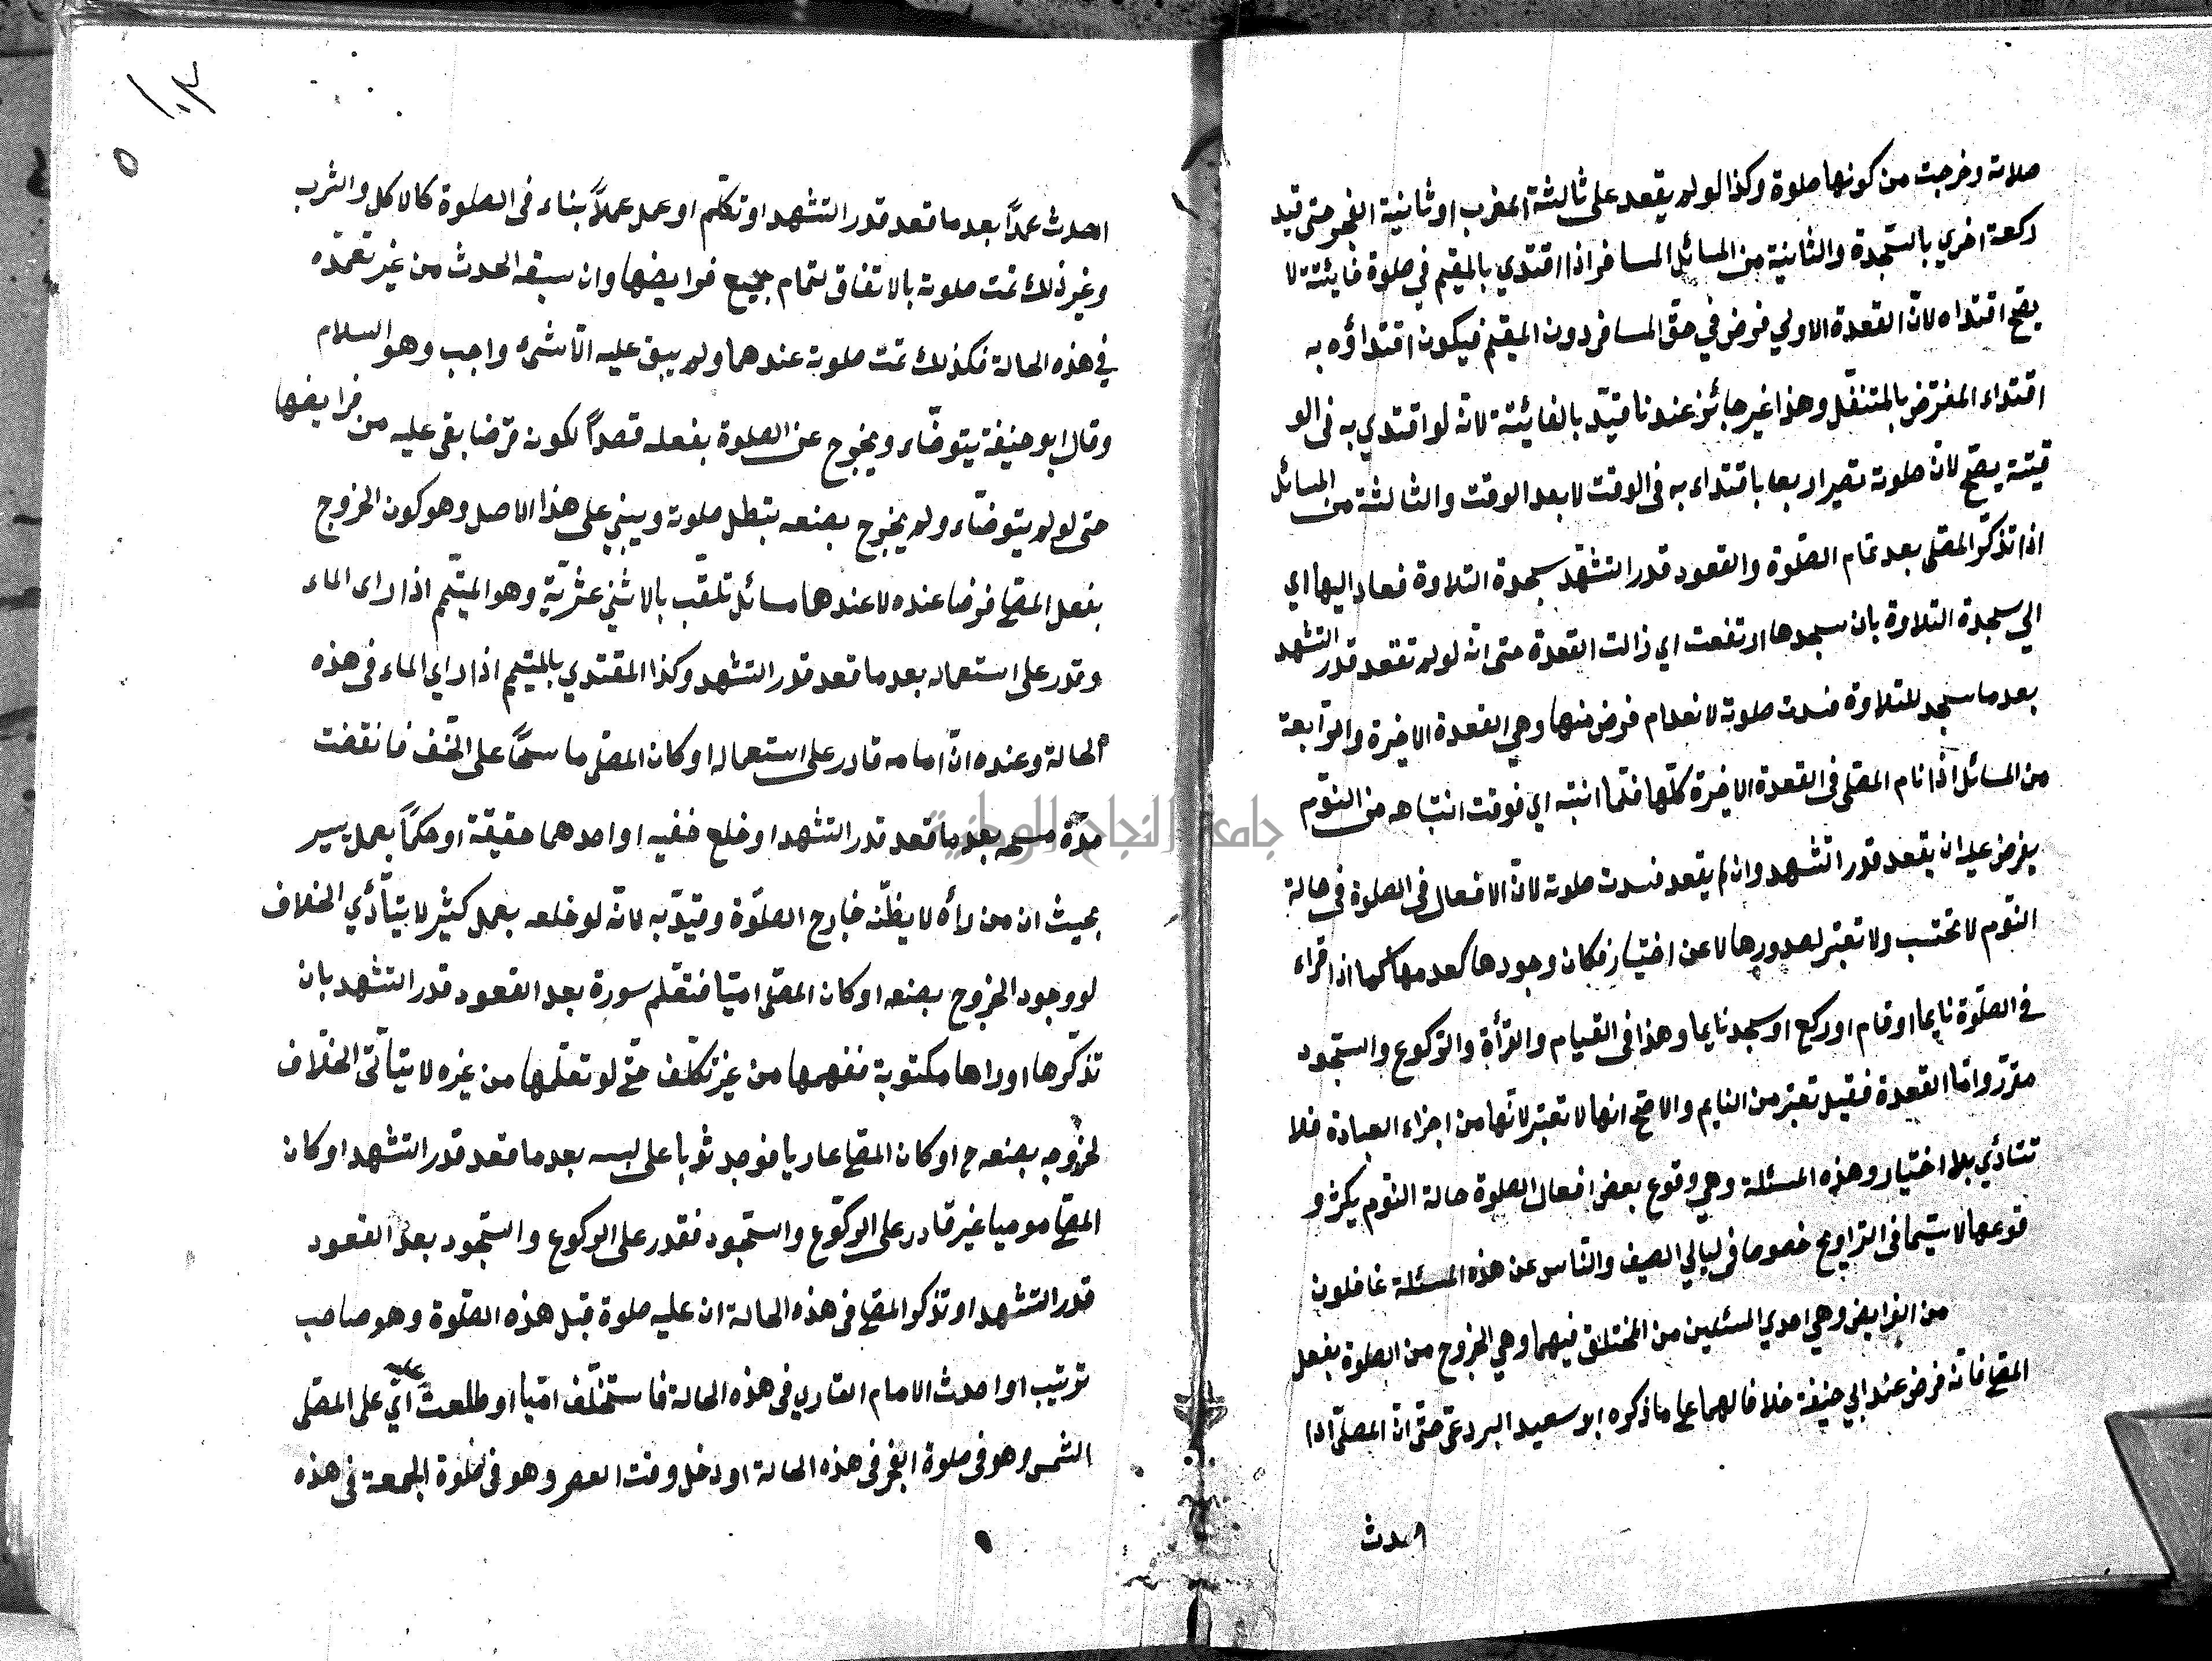 صلاته وخرجت من كونها صلوة وكذا لو لم يقعد على ثالثة المغرب او ثانية الفجر حتى قيد
ركعة اخري بالسّجدة والثانية من المسائل المسافر اذا اقتدي بالمقيم في صلوة فايئتة لا
يصحّ اقتداه لانّ القعدة الاولي فرض في حق المسافر دون المقيم فيكون اقتداؤه به
اقتداء المفترض بالمتنفّل وهذا غير جائز عندنا قيّد بالفائيتة لانّه لو اقتدي به فى الو
قيتة يصحّ لانّ صلوته تصير اربعا باقتداء به فى الوقت لا بعد الوقت والثالثة من المسائل
اذا تذكّر المصّلى بعد تمام الصّلوة والقعود قدر التشهّد سجدة التلاوة فعاد اليها اي
الي سجدة التلاوة بان سجدها ارتفعت اي زالت القعدة حتى انّه لو لم تقعد قدر التشهد
بعدما سجد للتلاوة فسدت صلوته لانعدام فرض منها وهي القعدة الاخيرة والرّابعة
من المسائل اذا نام المصّلى فى القعدة الاخيرة كلّها فلمّا انتبه اي فوقت انتباهه من النّوم
يفرض عليه ان يقعد قدر التشهد وان لم يقعد فسدت صلوته لانّ الافعال فى الصلوة في حالة
النّوم لا تحتسب ولا تعتبر لصدورها لا عن اختيار فكان وجودها كعدمها كما اذا قراء
في الصّلوة نايما او قام او ركع او سجد نايما وهذا فى القيام والقرأة والرّكوع والسّجود
مقرّر وامّا القعدة فقيل تعتبر من النايم والاصّح انها لا تعتبر لانّها من اجزاء العبادة فلا
تتاّدّي بلا اختيار وهذه المسئلة وهي وقوع بعض افعال الصلوة حالة النّوم يكثر و
قوعها لا سيّما فى التراويح خصوصا فى ليالي الصيف والنّاس عن هذه المسئلة غافلون
من الفرايض وهي احدي المسئلين من المختلف فيهما وهي الخروج من الصلوة بفعل
المصّلي فانّه فرض عند ابي حنيفة خلافا لهما علي ما ذكره ابو سعيد البردعيّ حتّى انّ المصلّى اذا
احدث
١٠٣
٥
احدث عمدًا بعد ما قعد قدر التشهد او تكلّم او عمل عملاً بناء فى الصلوة كالاكل والشرب
وغير ذلك تمت صلوته بالاتفاق لتمام جميع فرايضها وان سبقه الحدث من غير تعمّده
في هذه الحالة فكذلك تمت صلوته عندهما ولم يبق عليه الّا شئ واجب وهو السلام
وقال ابو حنيفة يتوضّاء ويخرج عن الصلوة بفعله قصدًا لكونه فرضا بقى عليه من فرايضها
حتى لو لم يتوضّاء ولم يخرج بصنعه تبطل صلوته ويبني على هذا الاصل وهو كون الخروج
بفعل المصّلي فرضا عنده لا عندهما مسائل تلقّب بالاثني عشريّة وهو المتيّمم اذا راى الماء
وقدر على استعماله بعد ما قعد قدر التشهد وكذا المقتدي بالمتيمم اذا راي الماء فى هذه
الحالة وعنده انّ امامه قادر على استعماله او كان المصّلى ماسحًا على الخف فانقضت
مدّة مسحه بعد ما قعد قدر التشهد او خلع خفيه او احدهما حقيقة او حكمًا بعمل يسير
بحيث ان من رأه لا يظّنه خارج الصلوة وقيدّ به لانّه لو خلعه بعمل كثير لا يتأّدّي الخلاف
لو وجود الخروج بصنعه او كان المصّلى امّيا فتعّلم سورة بعد القعود قدر التشهد بان
تذكّرها او راها مكتوبة ففهمها من غير تكلّف حتّى لو تعلّمها من غيره لا يتأتّى الخلاف
لخروجه بصنعه ح او كان المصّلي عاريا فوجد ثوبا على لبسه بعد ما قعد قدر التشهد او كان
المصّلي موميا غير قادر على الركوع والسّجود فقدر على الركوع والسّجود بعد القعود
قدر التشهد او تذكر المصّلي فى هذه الحالة ان عليه صلوة قبل هذه الصّلوة وهو صاحب
ترتيب او احدث الامام القاري فى هذه الحالة فاستخلّف امّيا او طلعت عليه اي على المصّلى
الشمس وهو فى صلوة الفجر فى هذه الحالة او دخل وقت العصر وهو فى صلوة الجمعة فى هذه
جامعة النجاح الوطنية